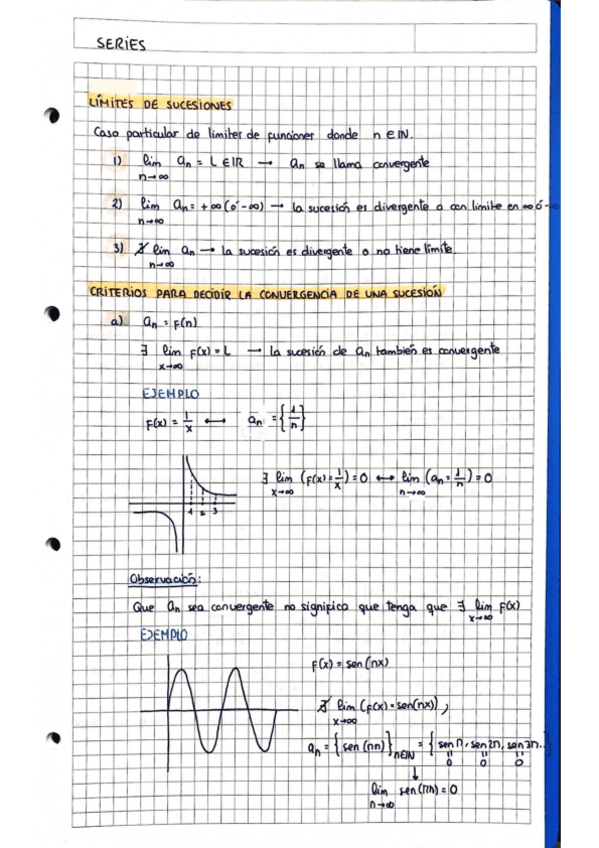 SERIES
LÍMITES DE SUCESIONES
Caso particular de límites de funciones donde n ∈ IN.
1) lim an = L ∈ IR → an se llama convergente
n→∞
2) lim an = +∞ (ó -∞) → la sucesión es divergente o con límite en ∞ ó -∞
n→∞
3) ∄ lim an → la sucesión es divergente o no tiene límite.
n→∞
CRITERIOS PARA DECIDIR LA CONVERGENCIA DE UNA SUCESIÓN
a) an = F(n)
∃ lim F(x) = L → la sucesión de an también es convergente
x→∞
EJEMPLO
F(x) = 1/x ↔ an = {1/n}
∃ lim (F(x) = 1/x) = 0 ↔ lim (an = 1/n) = 0
x→∞ n→∞
1 2 3
Observación:
Que an sea convergente no significa que tenga que ∃ lim F(x)
x→∞
EJEMPLO
F(x) = sen (πx)
∄ lim (F(x) = sen(πx)) ,
x→∞
an = {sen (πn)} n∈IN = {sen π, sen 2π, sen 3π...}
0 0 0
↓
lim sen (πn) = 0
n→∞